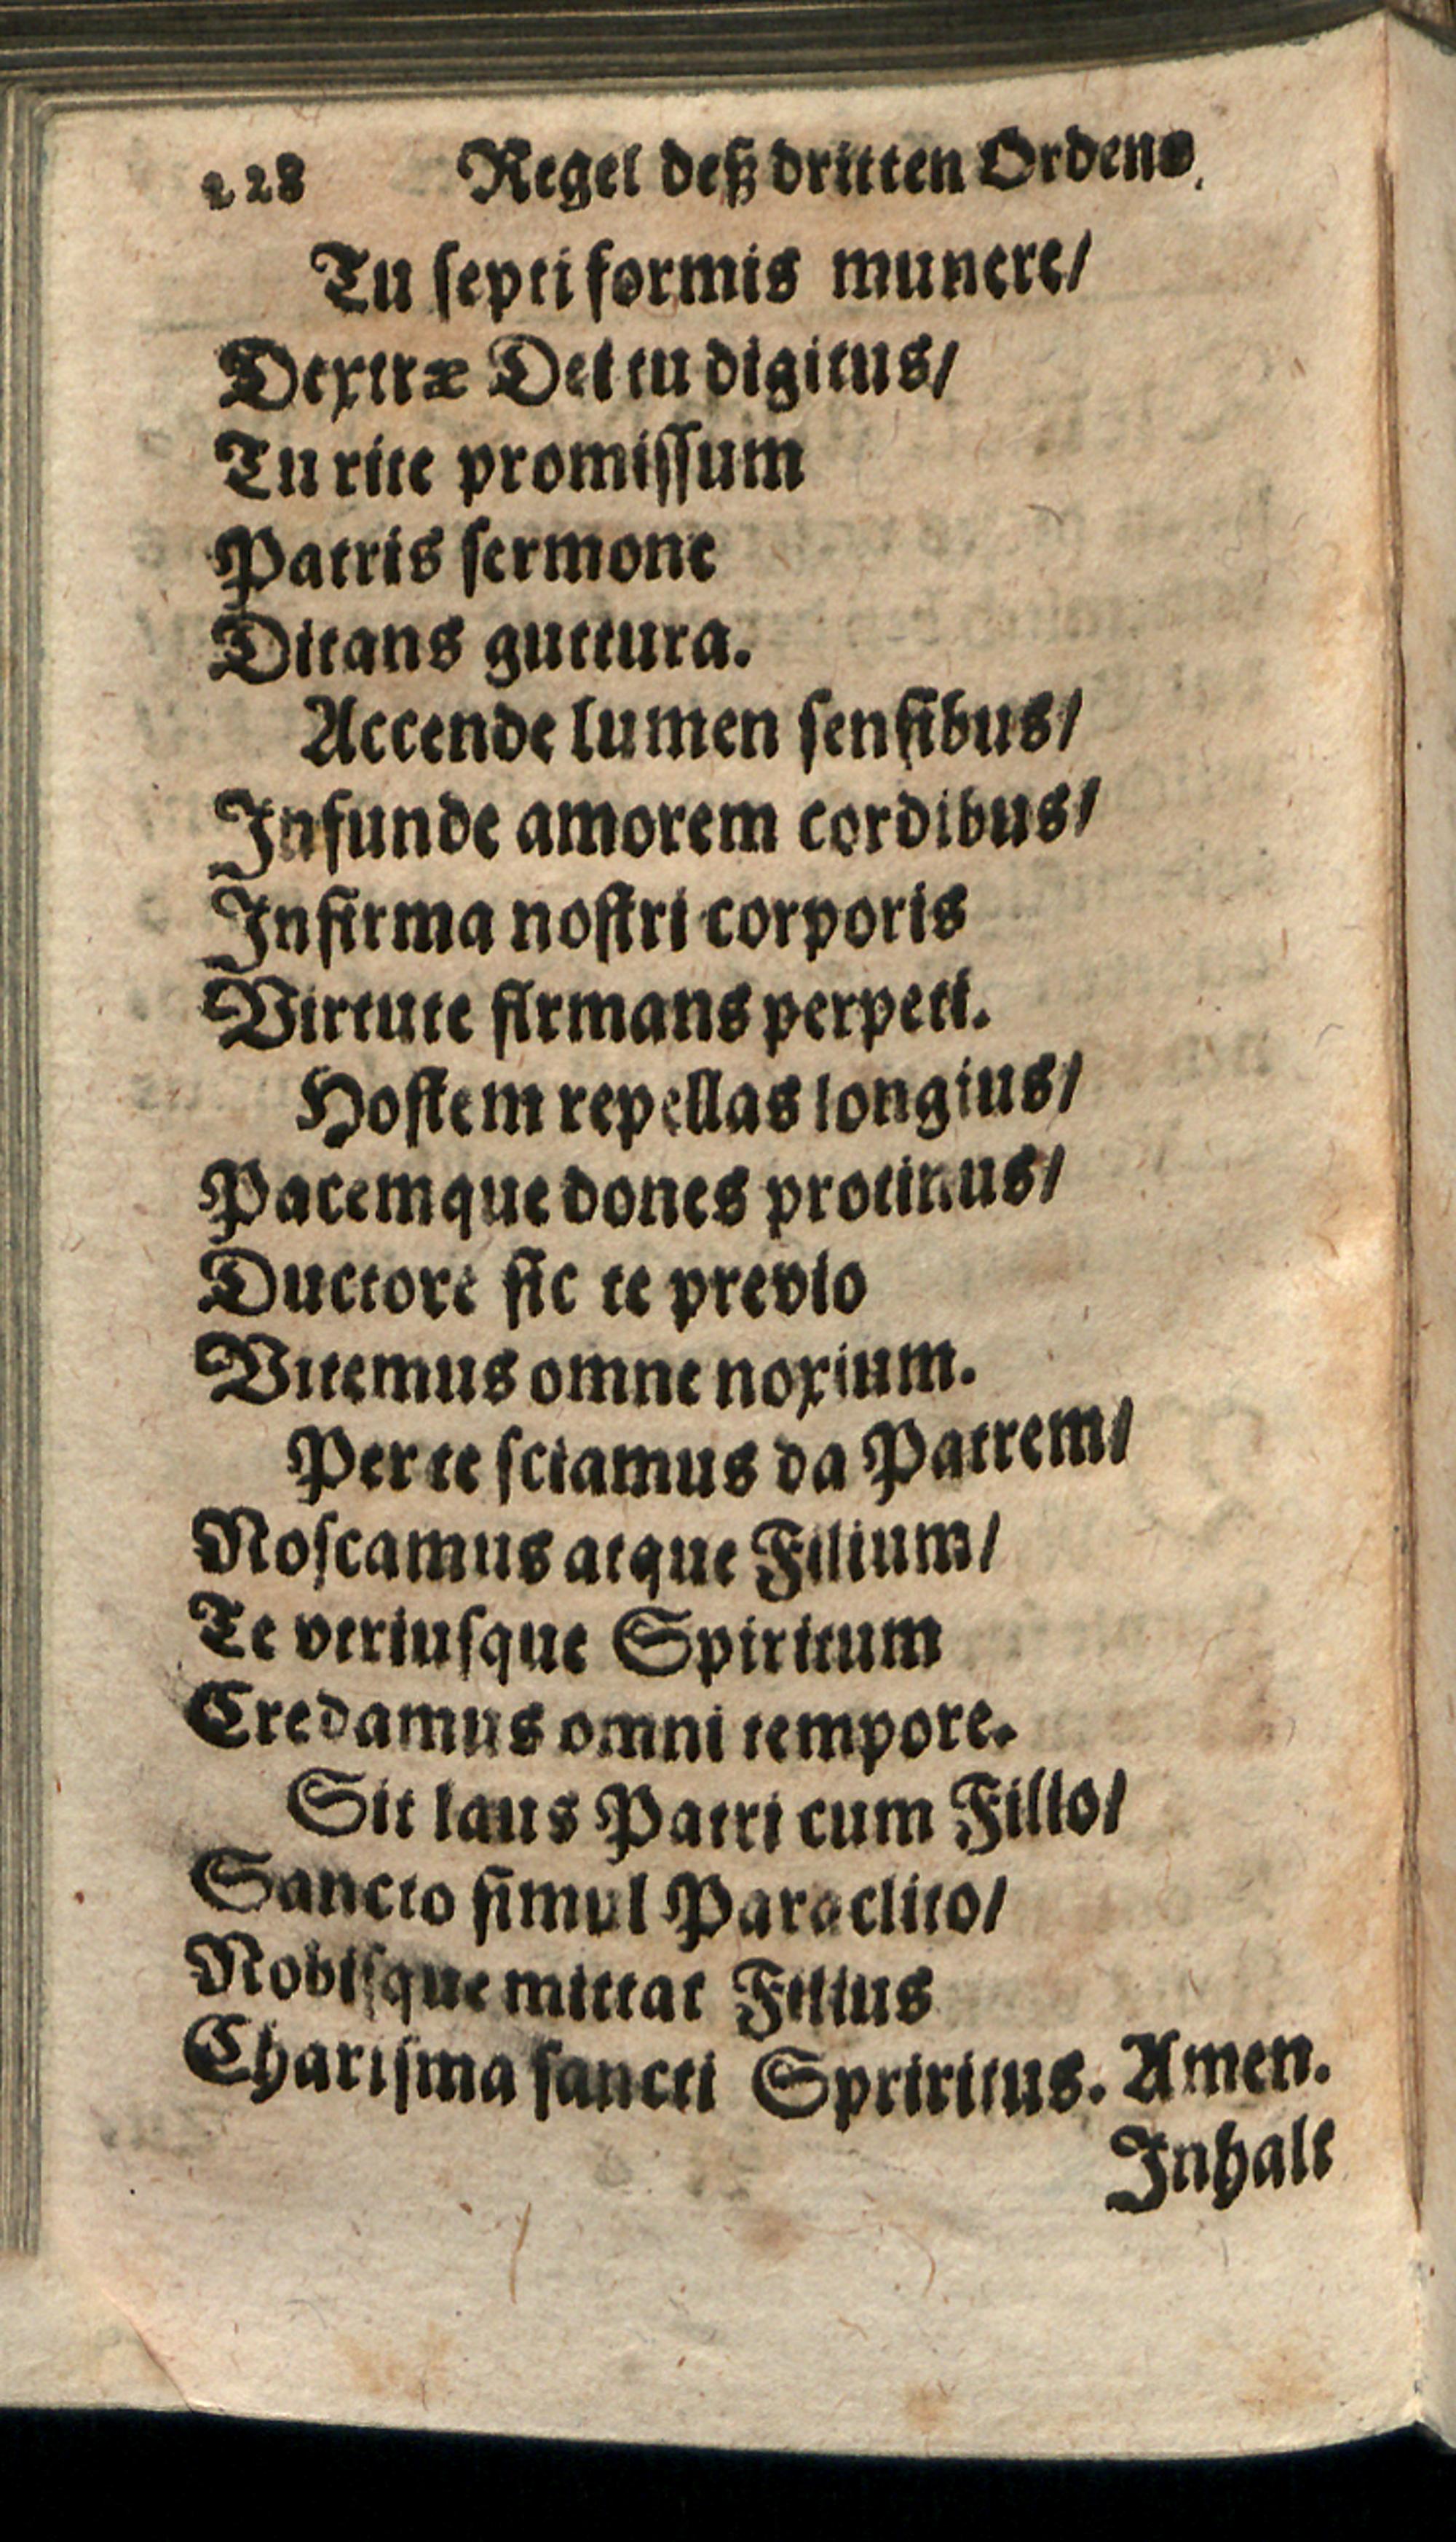 228 Regel deß dritten Ordens.
Tu septiformis munere/
Dextræ Dei tu digitus/
Tu rite promissum
Patris sermone
Ditans guttura.
Accende lumen sensibus/
Infunde amorem cordibus/
Infirma nostri corporis
Virtute firmans perpeti.
Hostem repellas longius/
Pacemque dones protinus/
Ductore sic te previo
Vitemus omne noxium.
Per te sciamus da Patrem/
Noscamus atque Filium/
Te vtriusque Spiritum
Credamus omni tempore.
Sit laus Patri cum Filio/
Sancto simul Paraclito/
Nobisque mittat Filius
Charisma sancti Spriritus. Amen.
Inhalt